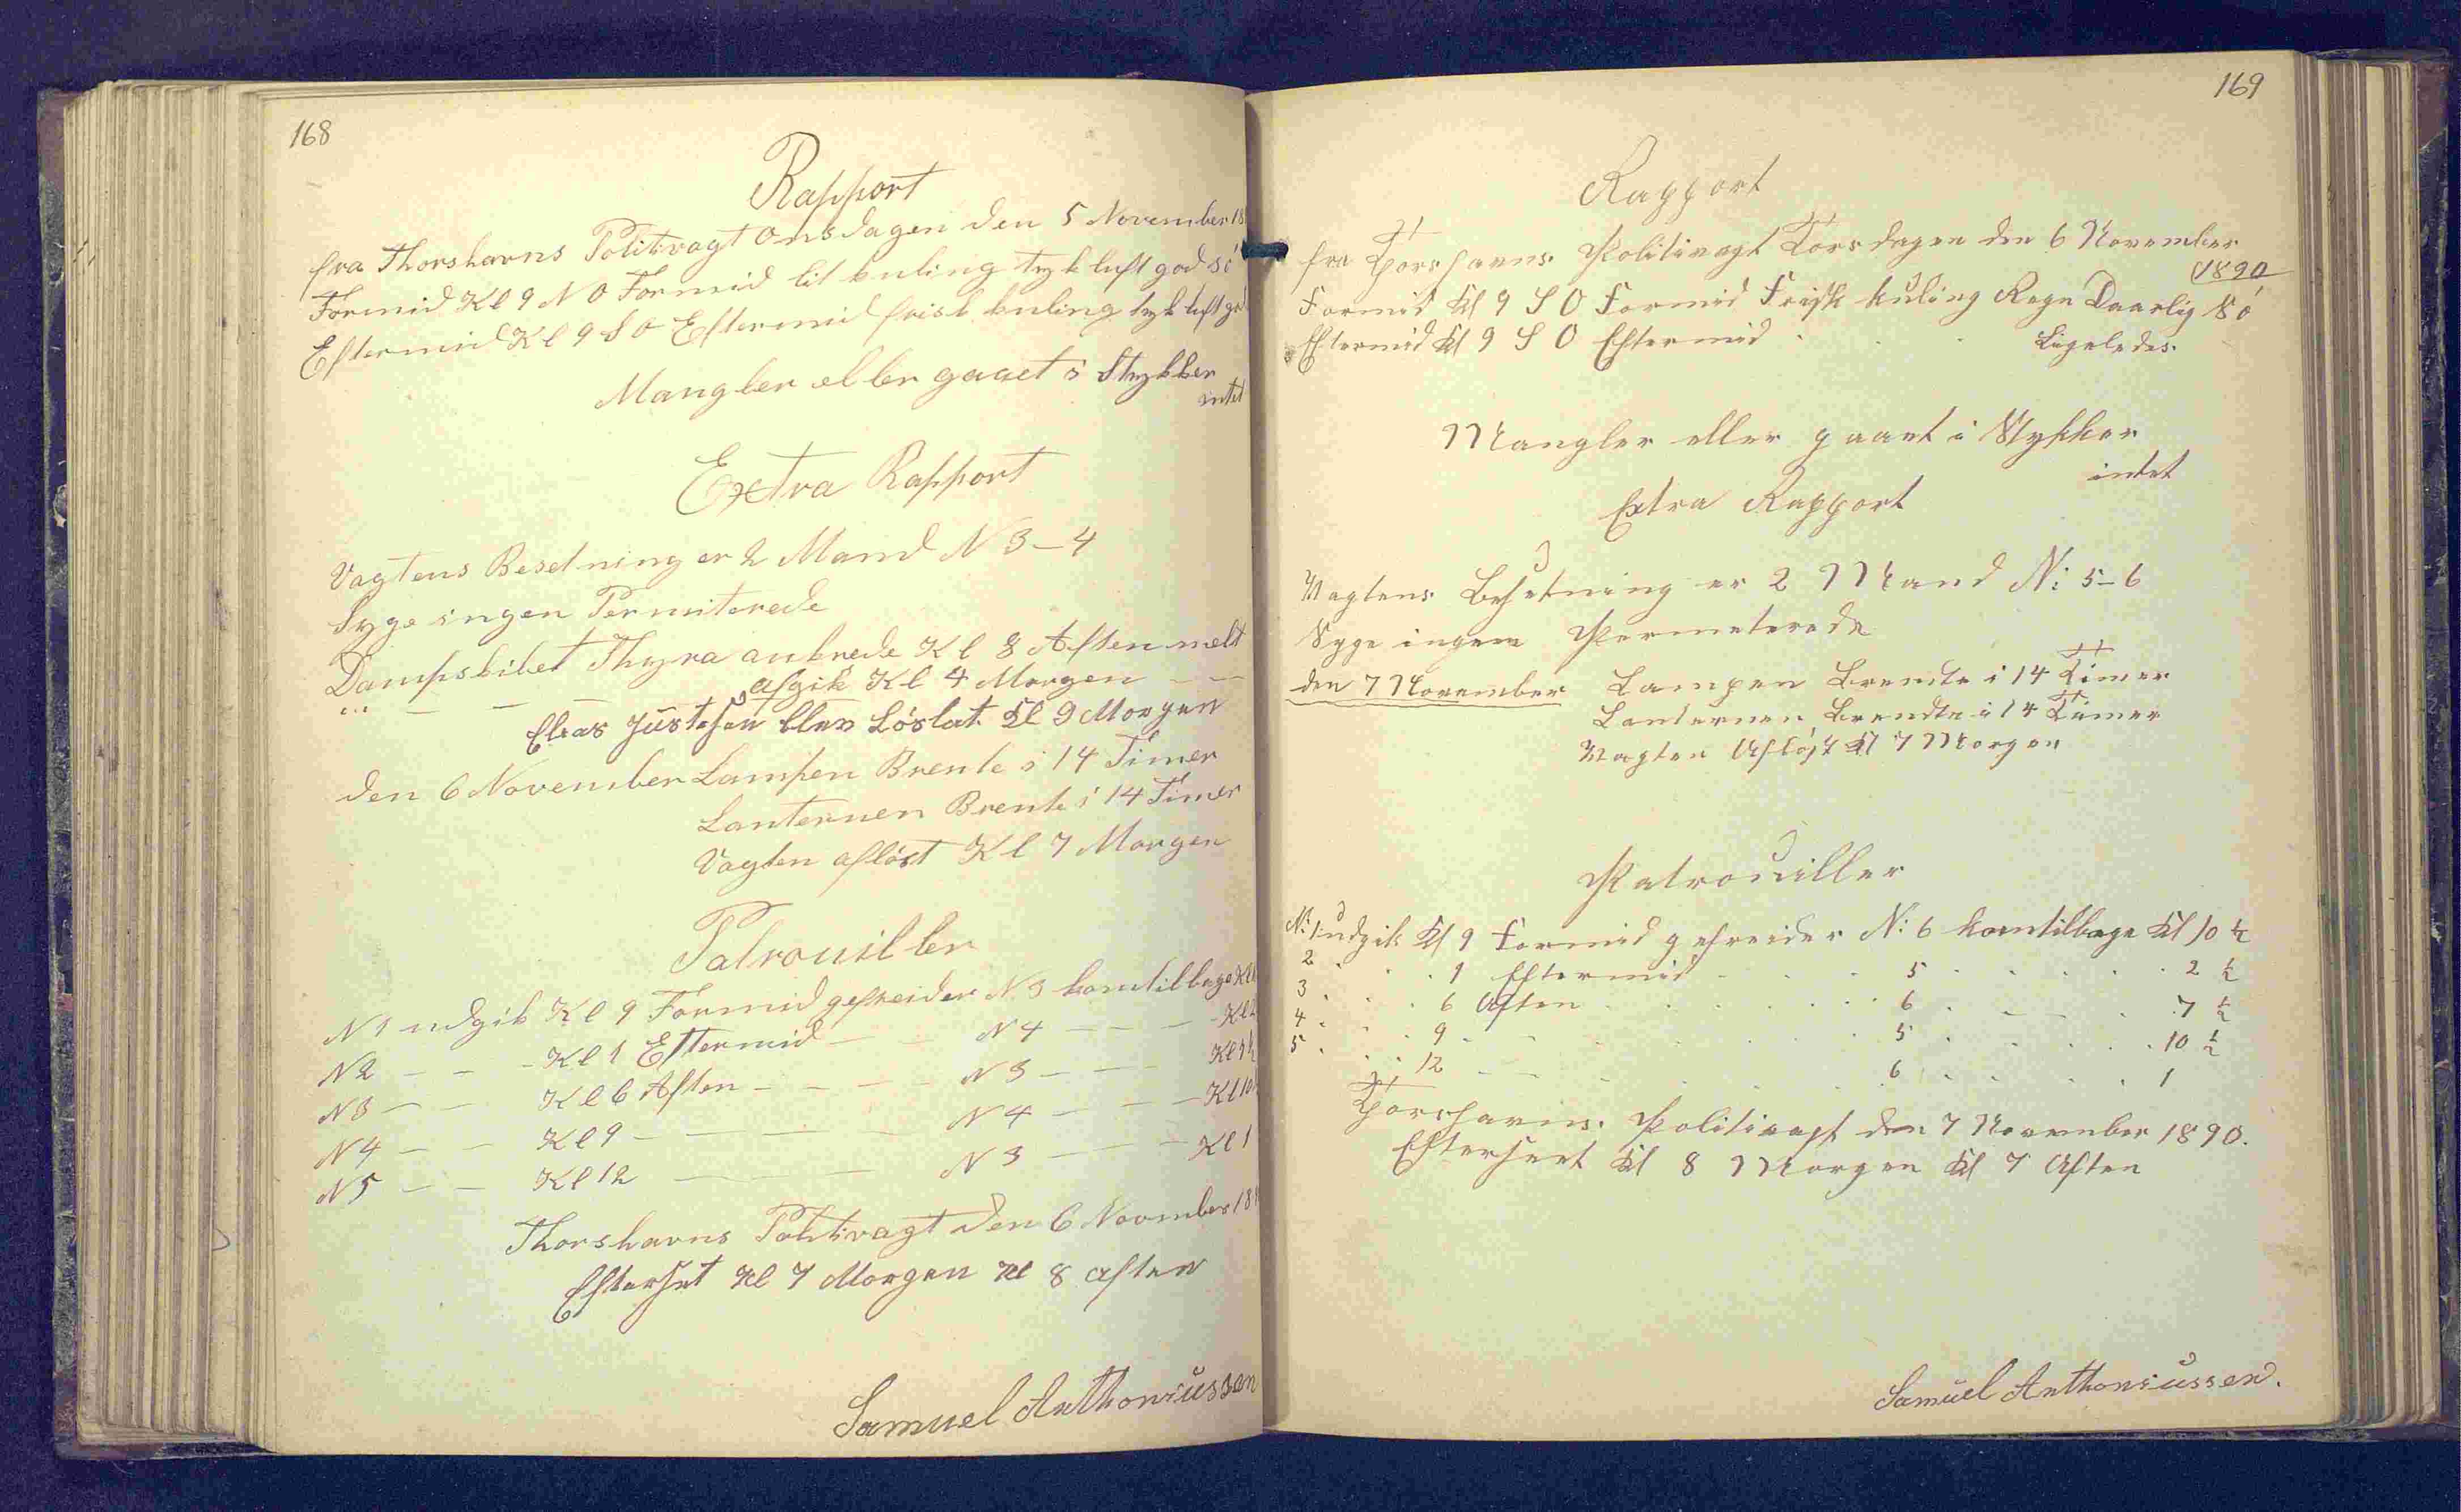 168
Rapport
fra Thorshavns Politivagt Onsdagen den 5 November 18
Formid Kl 9 N O Formid lit kuling tyk luft god Sö
Eftermid Kl 9 S O Eftermid frisk kuling tyk luft god
Mangler eller gaaet i Stykker
intet
Extra Rapport
Vagtens Besetning er 2 Mand N 3 – 4
Syge ingen Permiterede
Dampskibet Thyra ankrede Kl 8 Aften melt
" — — — afgik Kl 4 Morgen — —
Elias Justesen blev Löslat Kl 9 Morgen
den 6 November Lampen Brente i 14 Timer
Lanternen Brente i 14 Timer
Vagten aflöst Kl 7 Morgen
Patrouiller
N 1 udgik Kl 9 Formid gefreider N 3 komtilbage Kl
N 2 — — - Kl 1 Eftermid — — N 4 — — — - Kl 2
N 3 — — Kl 6 Aften — — — — N 3 — — — Kl 7 ½
N 4 — — Kl 9 — — — — N 4 — — — Kl 10
N 5 — — Kl 12 — — — N 3 — — Kl 1
Thorshavns Politivagt den 6 November 18
Efterset Kl 7 Morgen Kl 8 Aften
Samuel Anthoniussen
169
Rapport
fra Thorshavns Politivagt Torsdagen den 6 November
1890
Formid Kl 9 S O Formid Frisk kuling Regn Daarlig Sö
Eftermid Kl 9 S O Eftermid . . . Ligeledes.
Mangler eller gaaet i Stykker
intet
Extra Rapport
Vagtens Besetning er 2 Mand N: 5 – 6
Syge ingen Permeterede
den 7 November Lampen Brendte i 14 Timer
Lanternen Brendte i 14 Timer
Vagten Aflöst Kl 7 Morgen
Patrouiller
N: 1 udgik Kl 9 Formid gefreider N: 6 komtilbage Kl 10 ½
2 . . . 1 Eftermid . . . 5 . . . . . 2 ½
3 . . . 6 Aften . . . . . 6 . . . . 7 ½
4 . . . 9 . . . . . . 5 . . . . . 10 ½
5 . . . 12 . . . . . . 6 . . . . 1
Thorshavns. Politivagt den 7 November 1890.
Efterseet Kl 8 Morgen Kl 7 Aften
Samuel Anthoniussen.